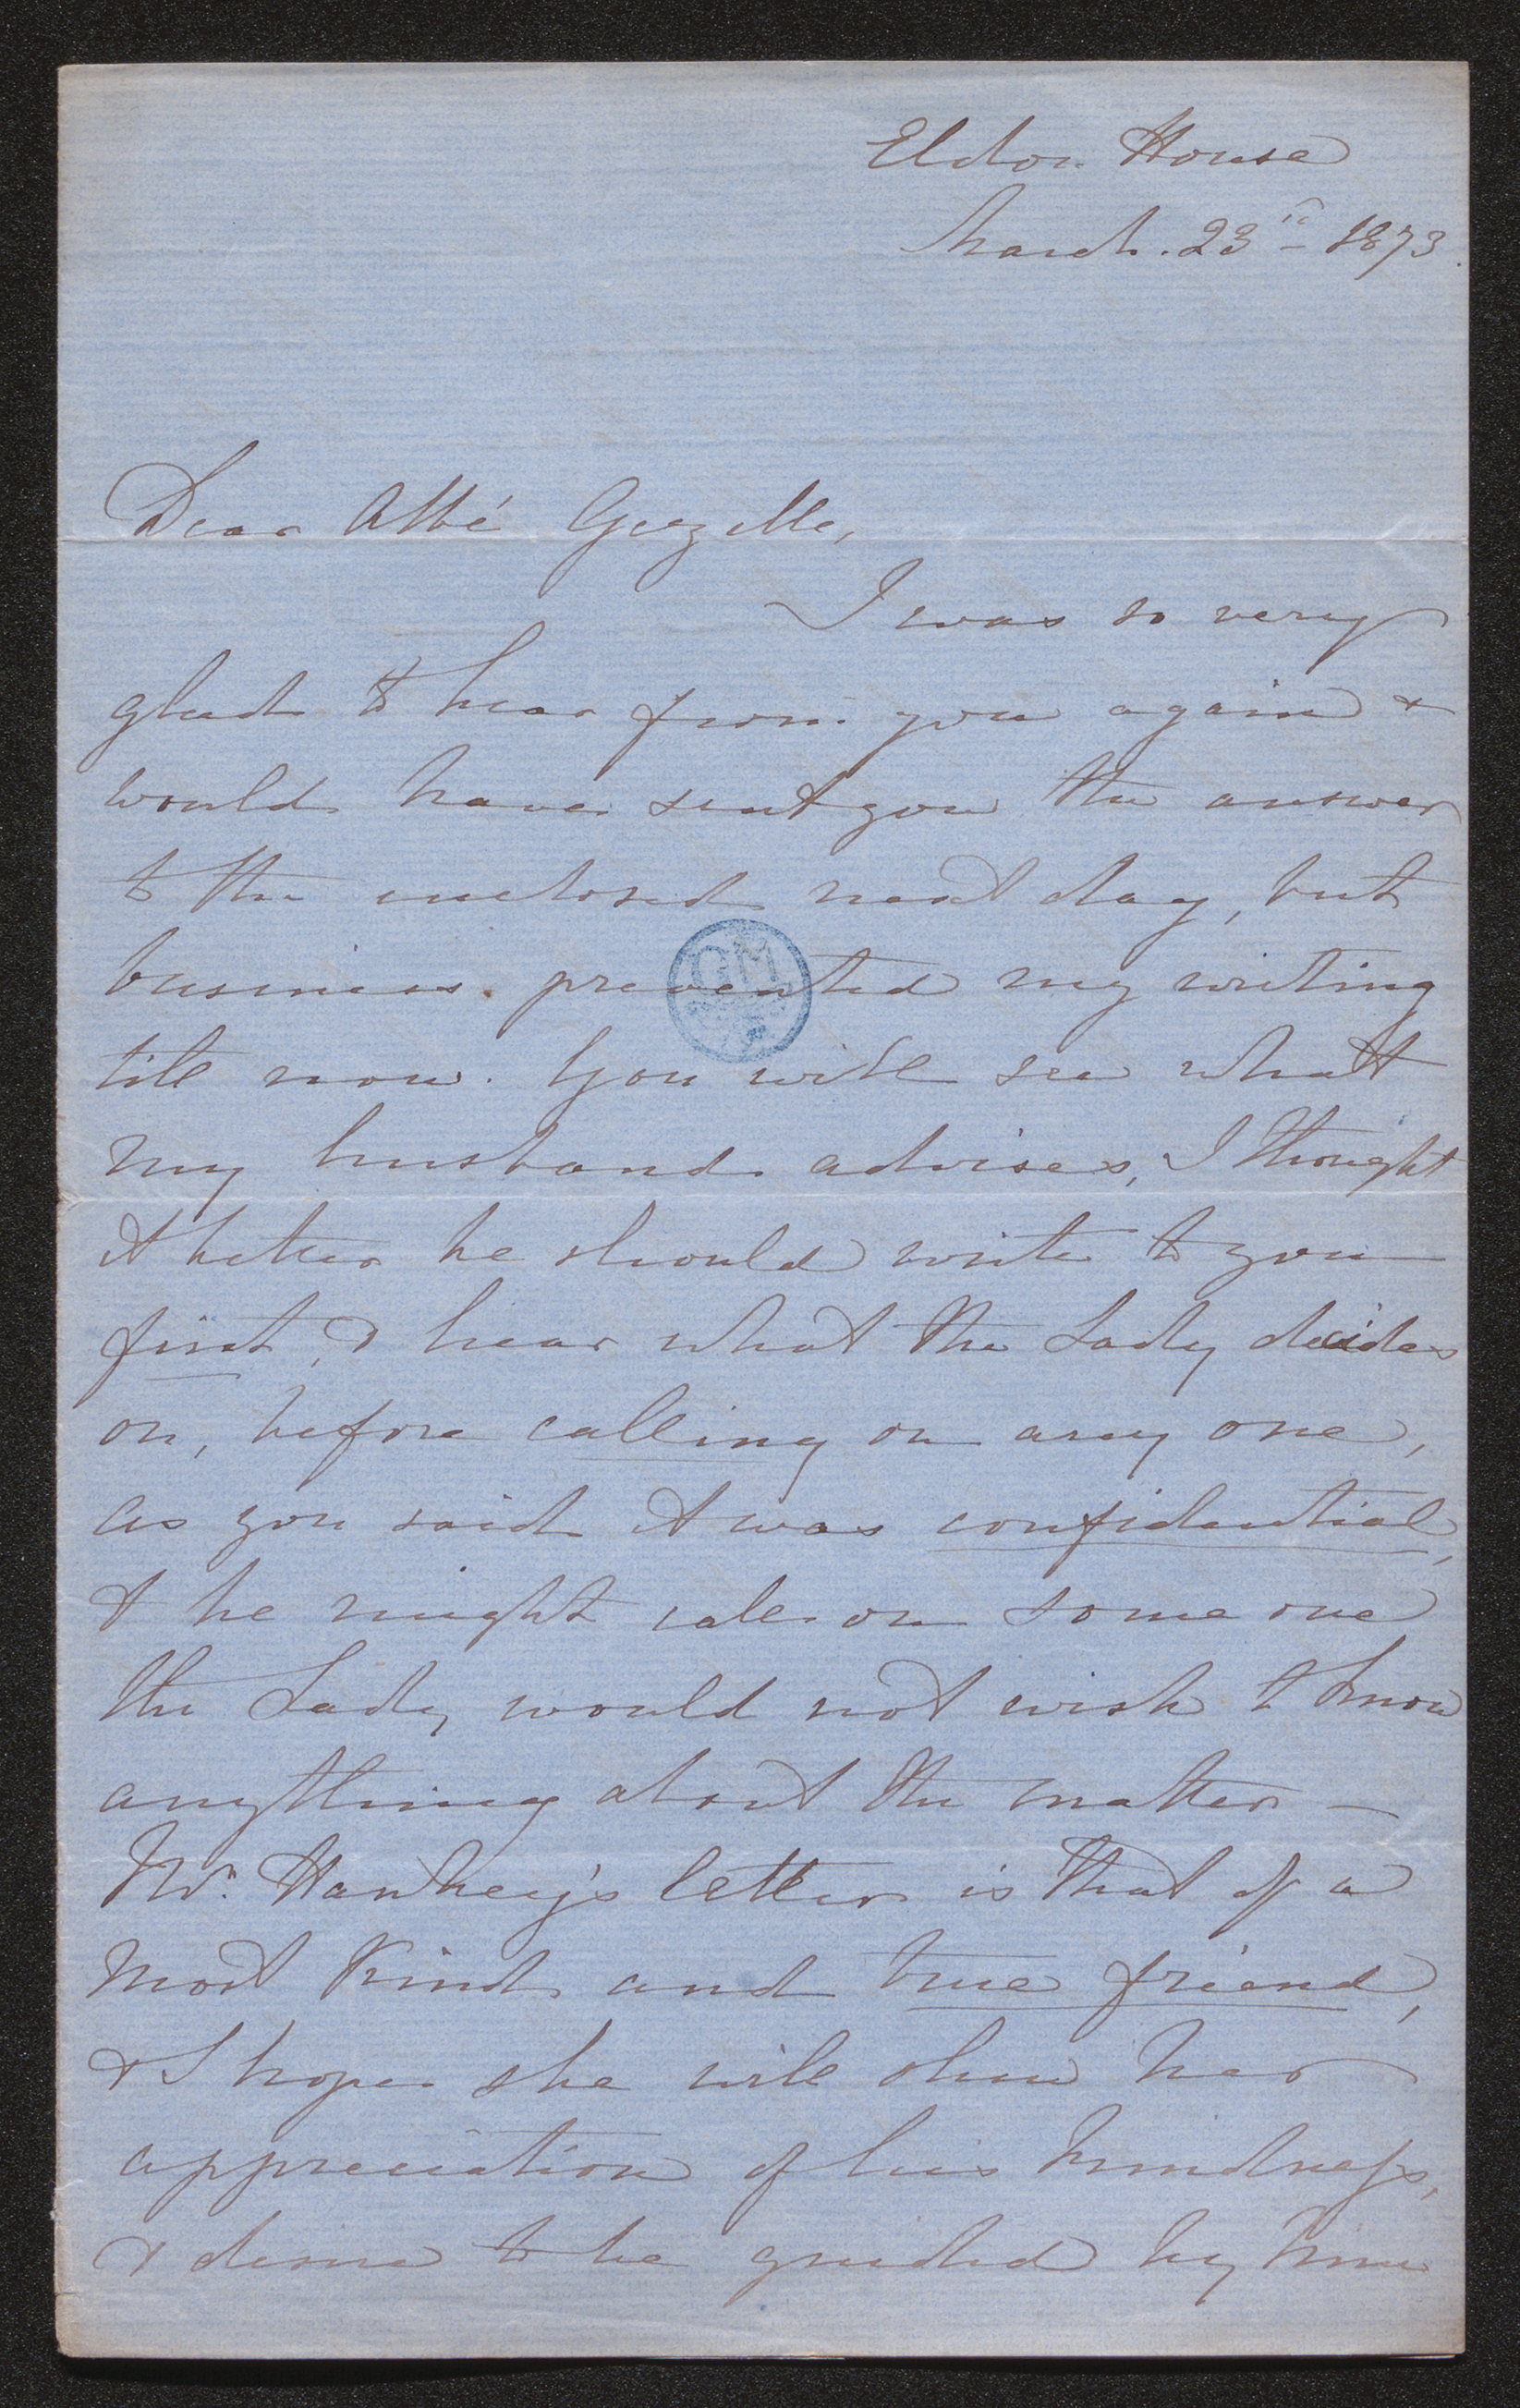 Eldon House
March. 23rd 1873.
Dear Abbé Guezelle,
I was so very
glad to hear from you again &
would have sent you the answer
to the enclosed next day, but
business prevented my writing
till now. You will see what
my husband advises, I thought
it better he should write to you
first, & hear what the Lady decides
on, before calling on any one,
as you said it was confidential,
& he might call on some one
the Lady would not wish to know
anything about the matter —
Mr. Hawkey's letter is that of a
most kind and true friend,
& I hope she will show her
appreciation of his kindness,
& desire to be guided by him
GM